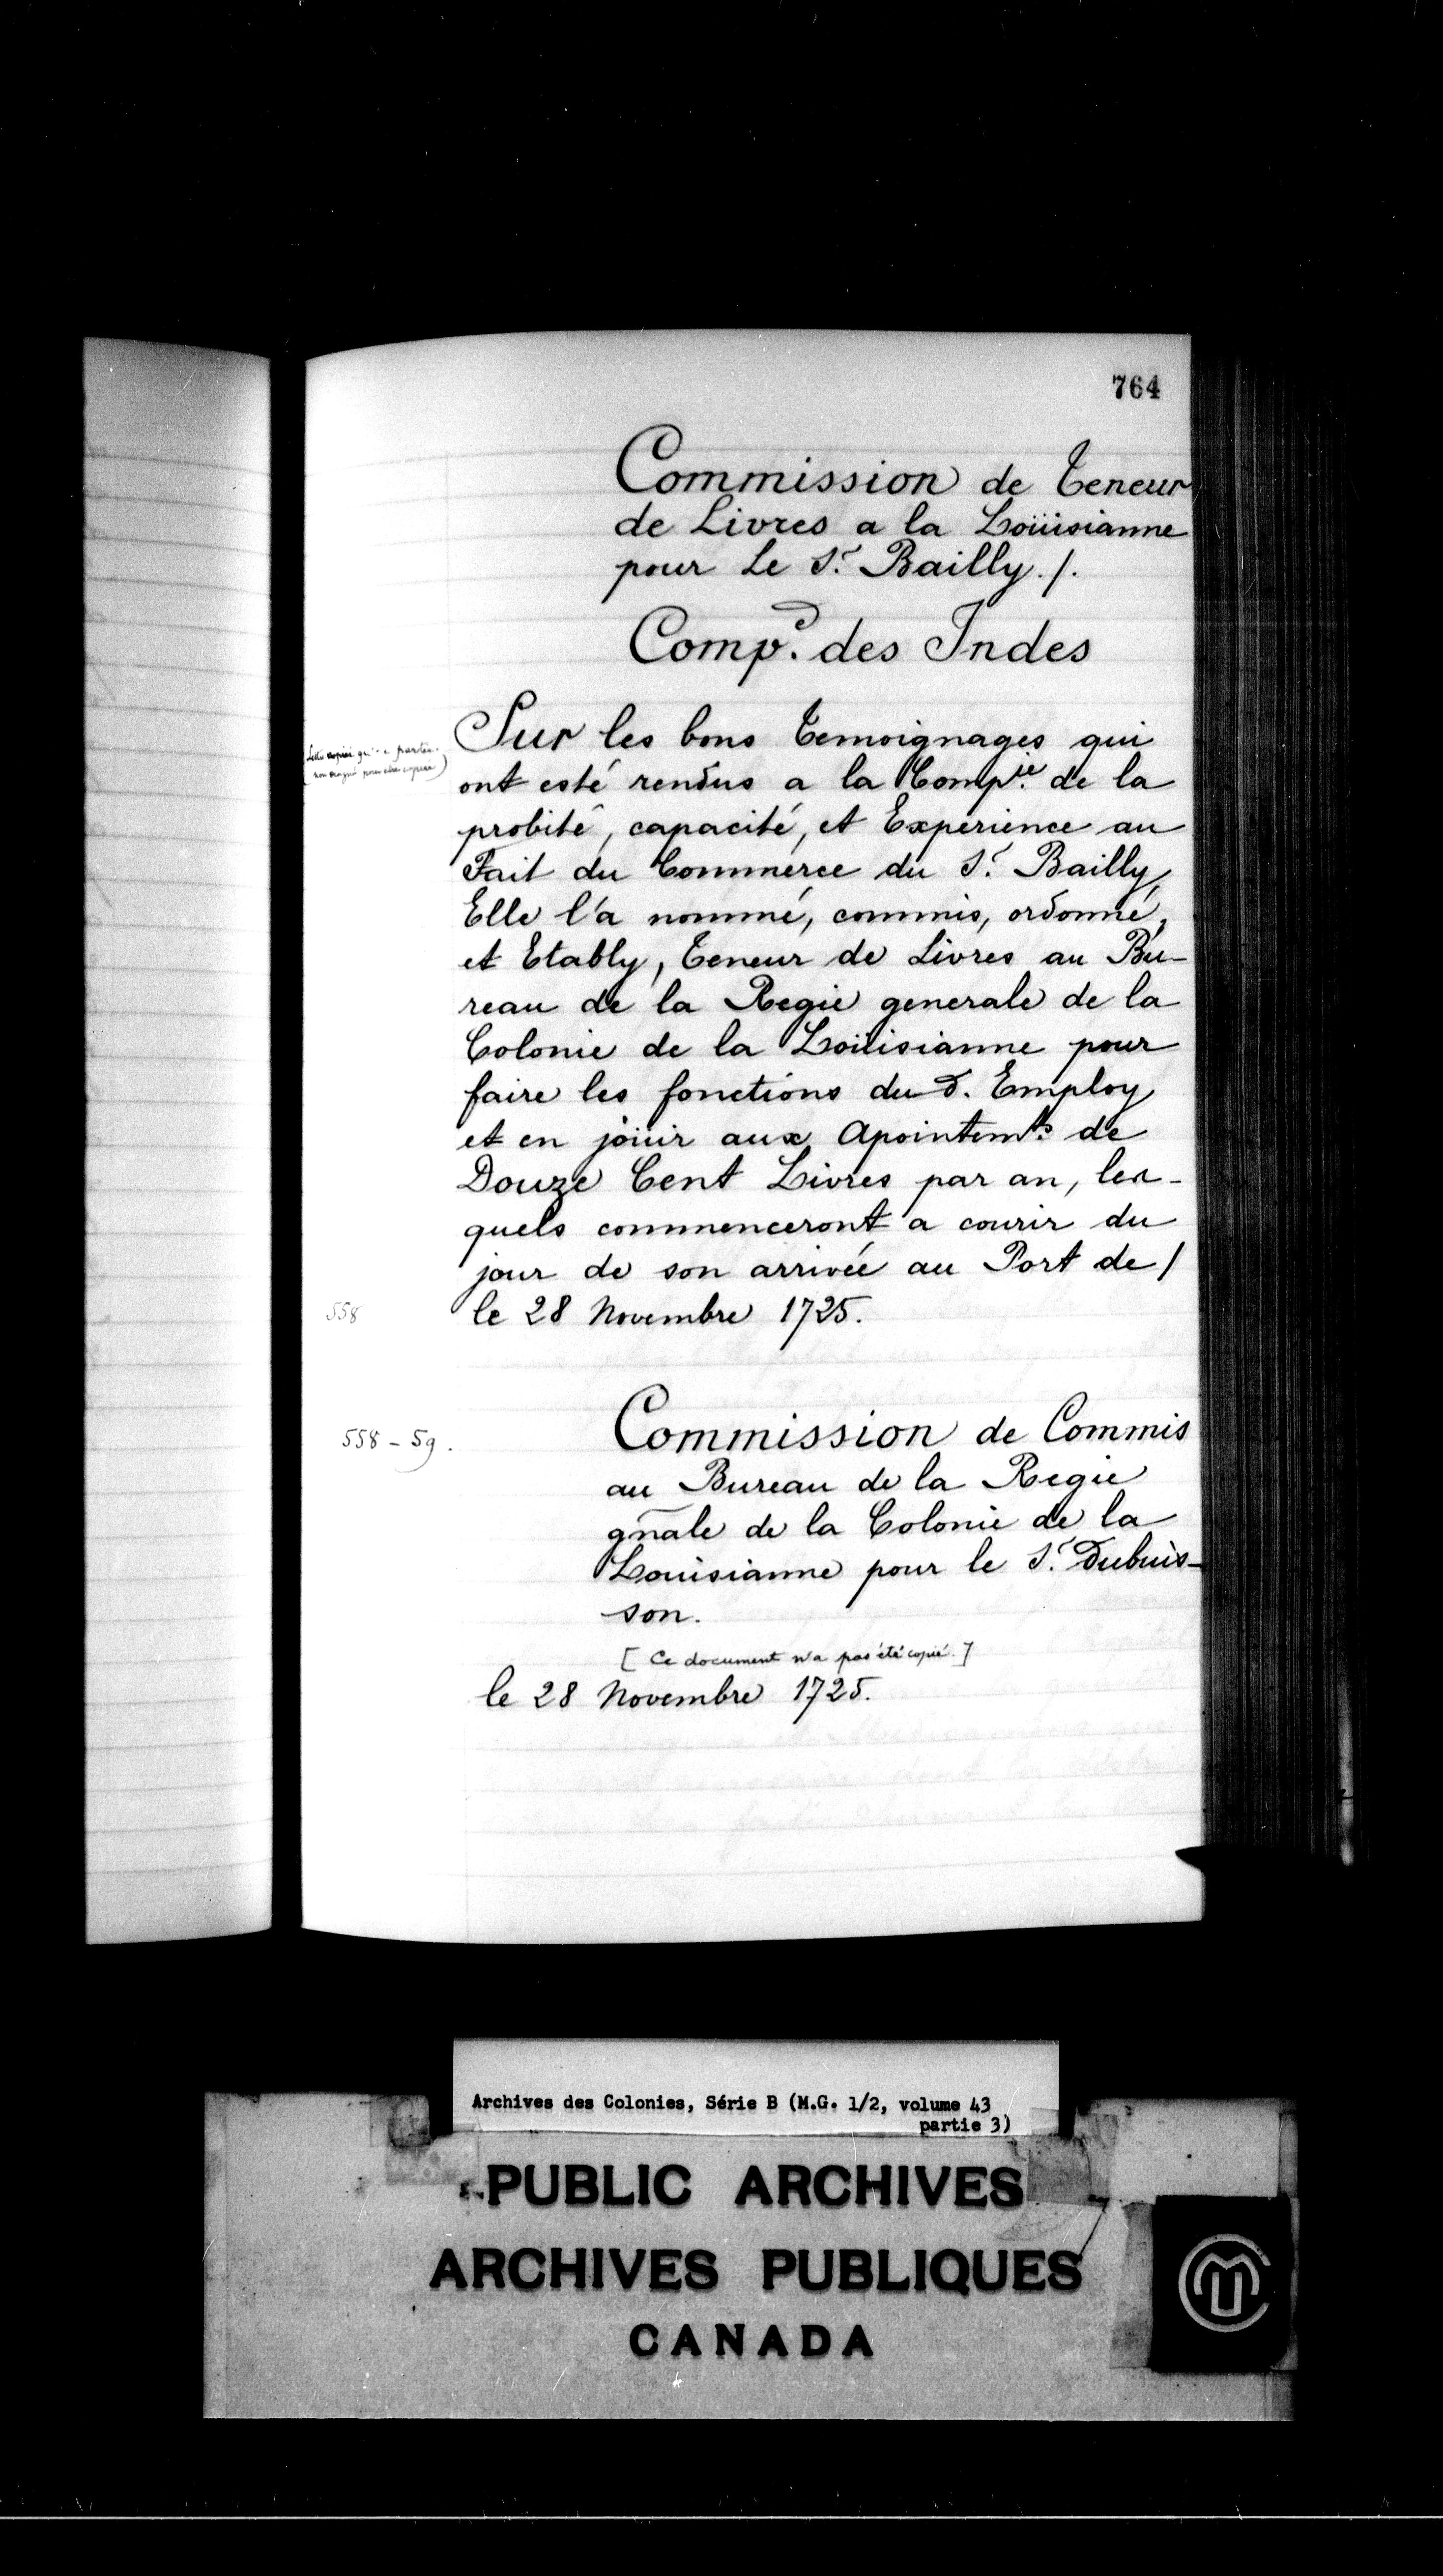 764
Commission de Teneur
de Livres a la Loüisianne
pour Le Sr. Bailly./.
Compe. des Indes
Sur les bons Temoignages qui
ont esté rendus a la Compie. de la
probité, capacité, et Experience au
Fait du Commerce du Sr. Bailly,
Elle l'a nommé, commis, ordonné,
et Etably, Teneur de Livres au Bu-
reau de la Regie generale de la
Colonie de la Loüisianne pour
faire les fonctions du d. Employ
et en joüir aux Apointemts. de
Douze Cent Livres par an, les-
quels commenceront a courir du
jour de son arrivée au Port de /
558
le 28 Novembre 1725.
558-59.
Commission de Commis
au Bureau de la Regie
gñale de la Colonie de la
Louisianne pour le Sr. Dubuis-
son.
[Ce document n'a pas été copié.]
le 28 Novembre 1725.
Archives des Colonies, Série B (M.G. 1/2, volume 43
partie 3)
PUBLIC ARCHIVES
ARCHIVES PUBLIQUES
CANADA